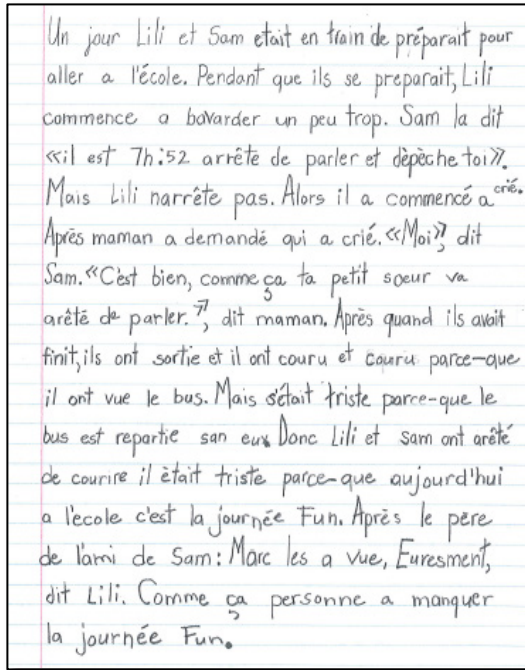 Un jour Lili et Sam etait en train de préparait pour
aller a l'école. Pendant que ils se preparait, Lili
commence a bavarder un peu trop. Sam la dit
«il est 7h:52 arrête de parler et dèpèche toi».
Mais Lili narrête pas. Alors il a commencé a crié.
Après maman a demandé qui a crié. «Moi», dit
Sam. «C'est bien, comme ça ta petit soeur va
arêté de parler.», dit maman. Après quand ils avait
finit, ils ont sortie et il ont couru et couru parce-que
il ont vue le bus. Mais s'était triste parce-que le
bus est repartie san eux. Donc Lili et Sam ont arêté
de courire il ètait triste parce-que aujourd'hui
a l'ecole c'est la journée Fun. Après le père
de l'ami de Sam: Marc les a vue, Euresment,
dit Lili. Comme ça personne a manquer
la journée Fun.